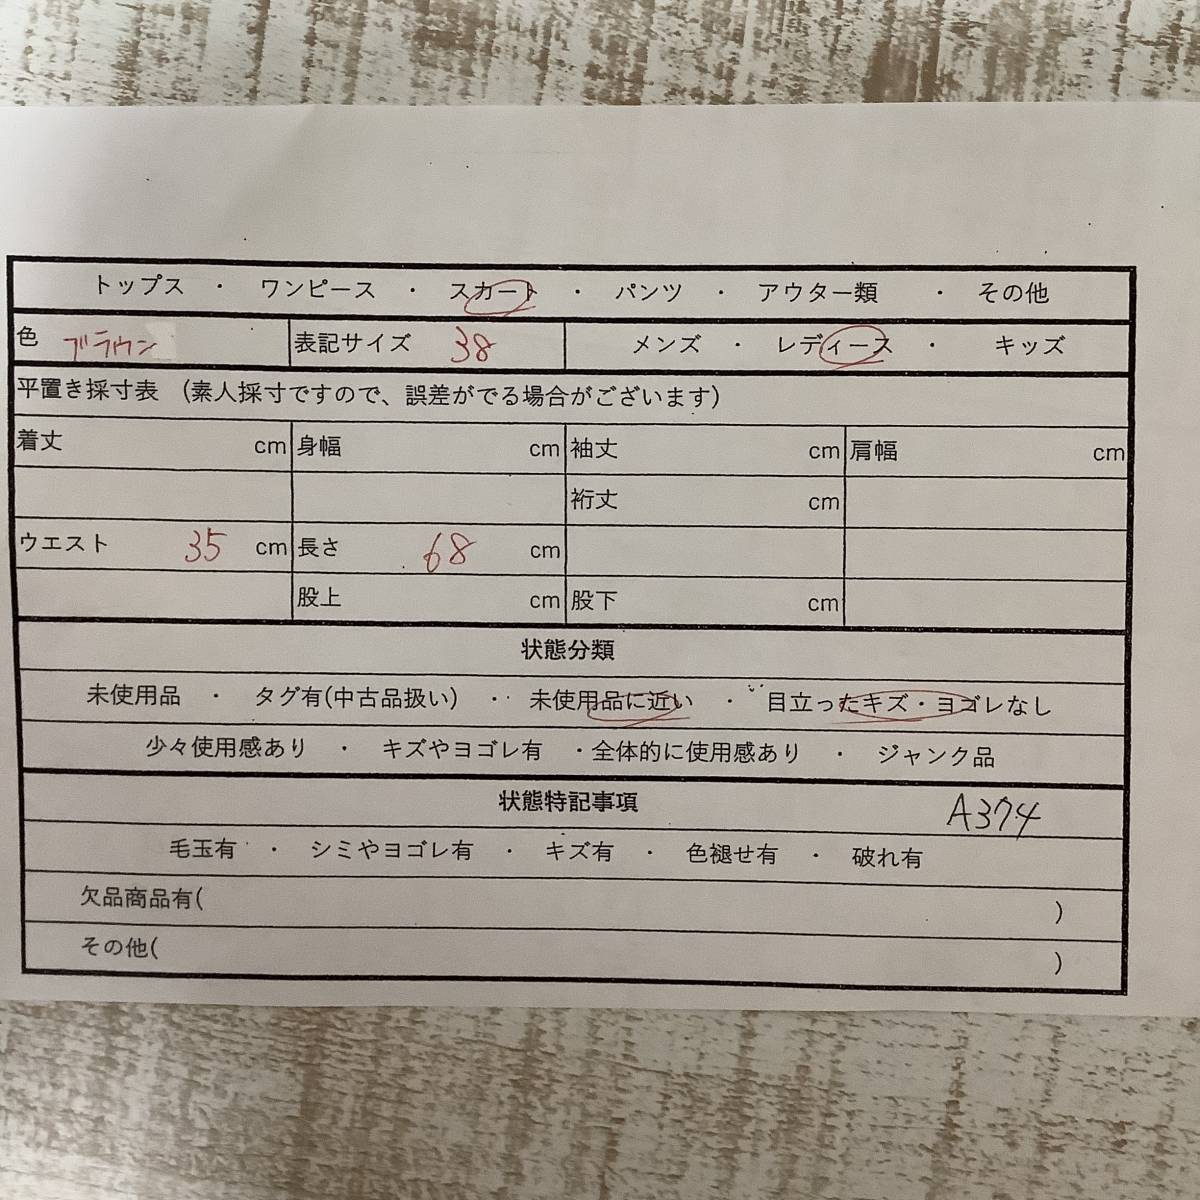 トップス ・ ワンピース ・ スカート ・ パンツ ・ アウター類 ・ その他
色 ブラウン 表記サイズ 38 メンズ ・ レディース ・ キッズ
平置き採寸表 (素人採寸ですので、誤差がでる場合がございます)
着丈 cm 身幅 cm 袖丈 cm 肩幅 cm
裄丈 cm
ウエスト 35 cm 長さ 68 cm
股上 cm 股下 cm
状態分類
未使用品 ・ タグ有(中古品扱い) ・ 未使用品に近い ・ 目立ったキズ・ヨゴレなし
少々使用感あり ・ キズやヨゴレ有 ・全体的に使用感あり ・ ジャンク品
状態特記事項 A374
毛玉有 ・ シミやヨゴレ有 ・ キズ有 ・ 色褪せ有 ・ 破れ有
欠品商品有( )
その他( )